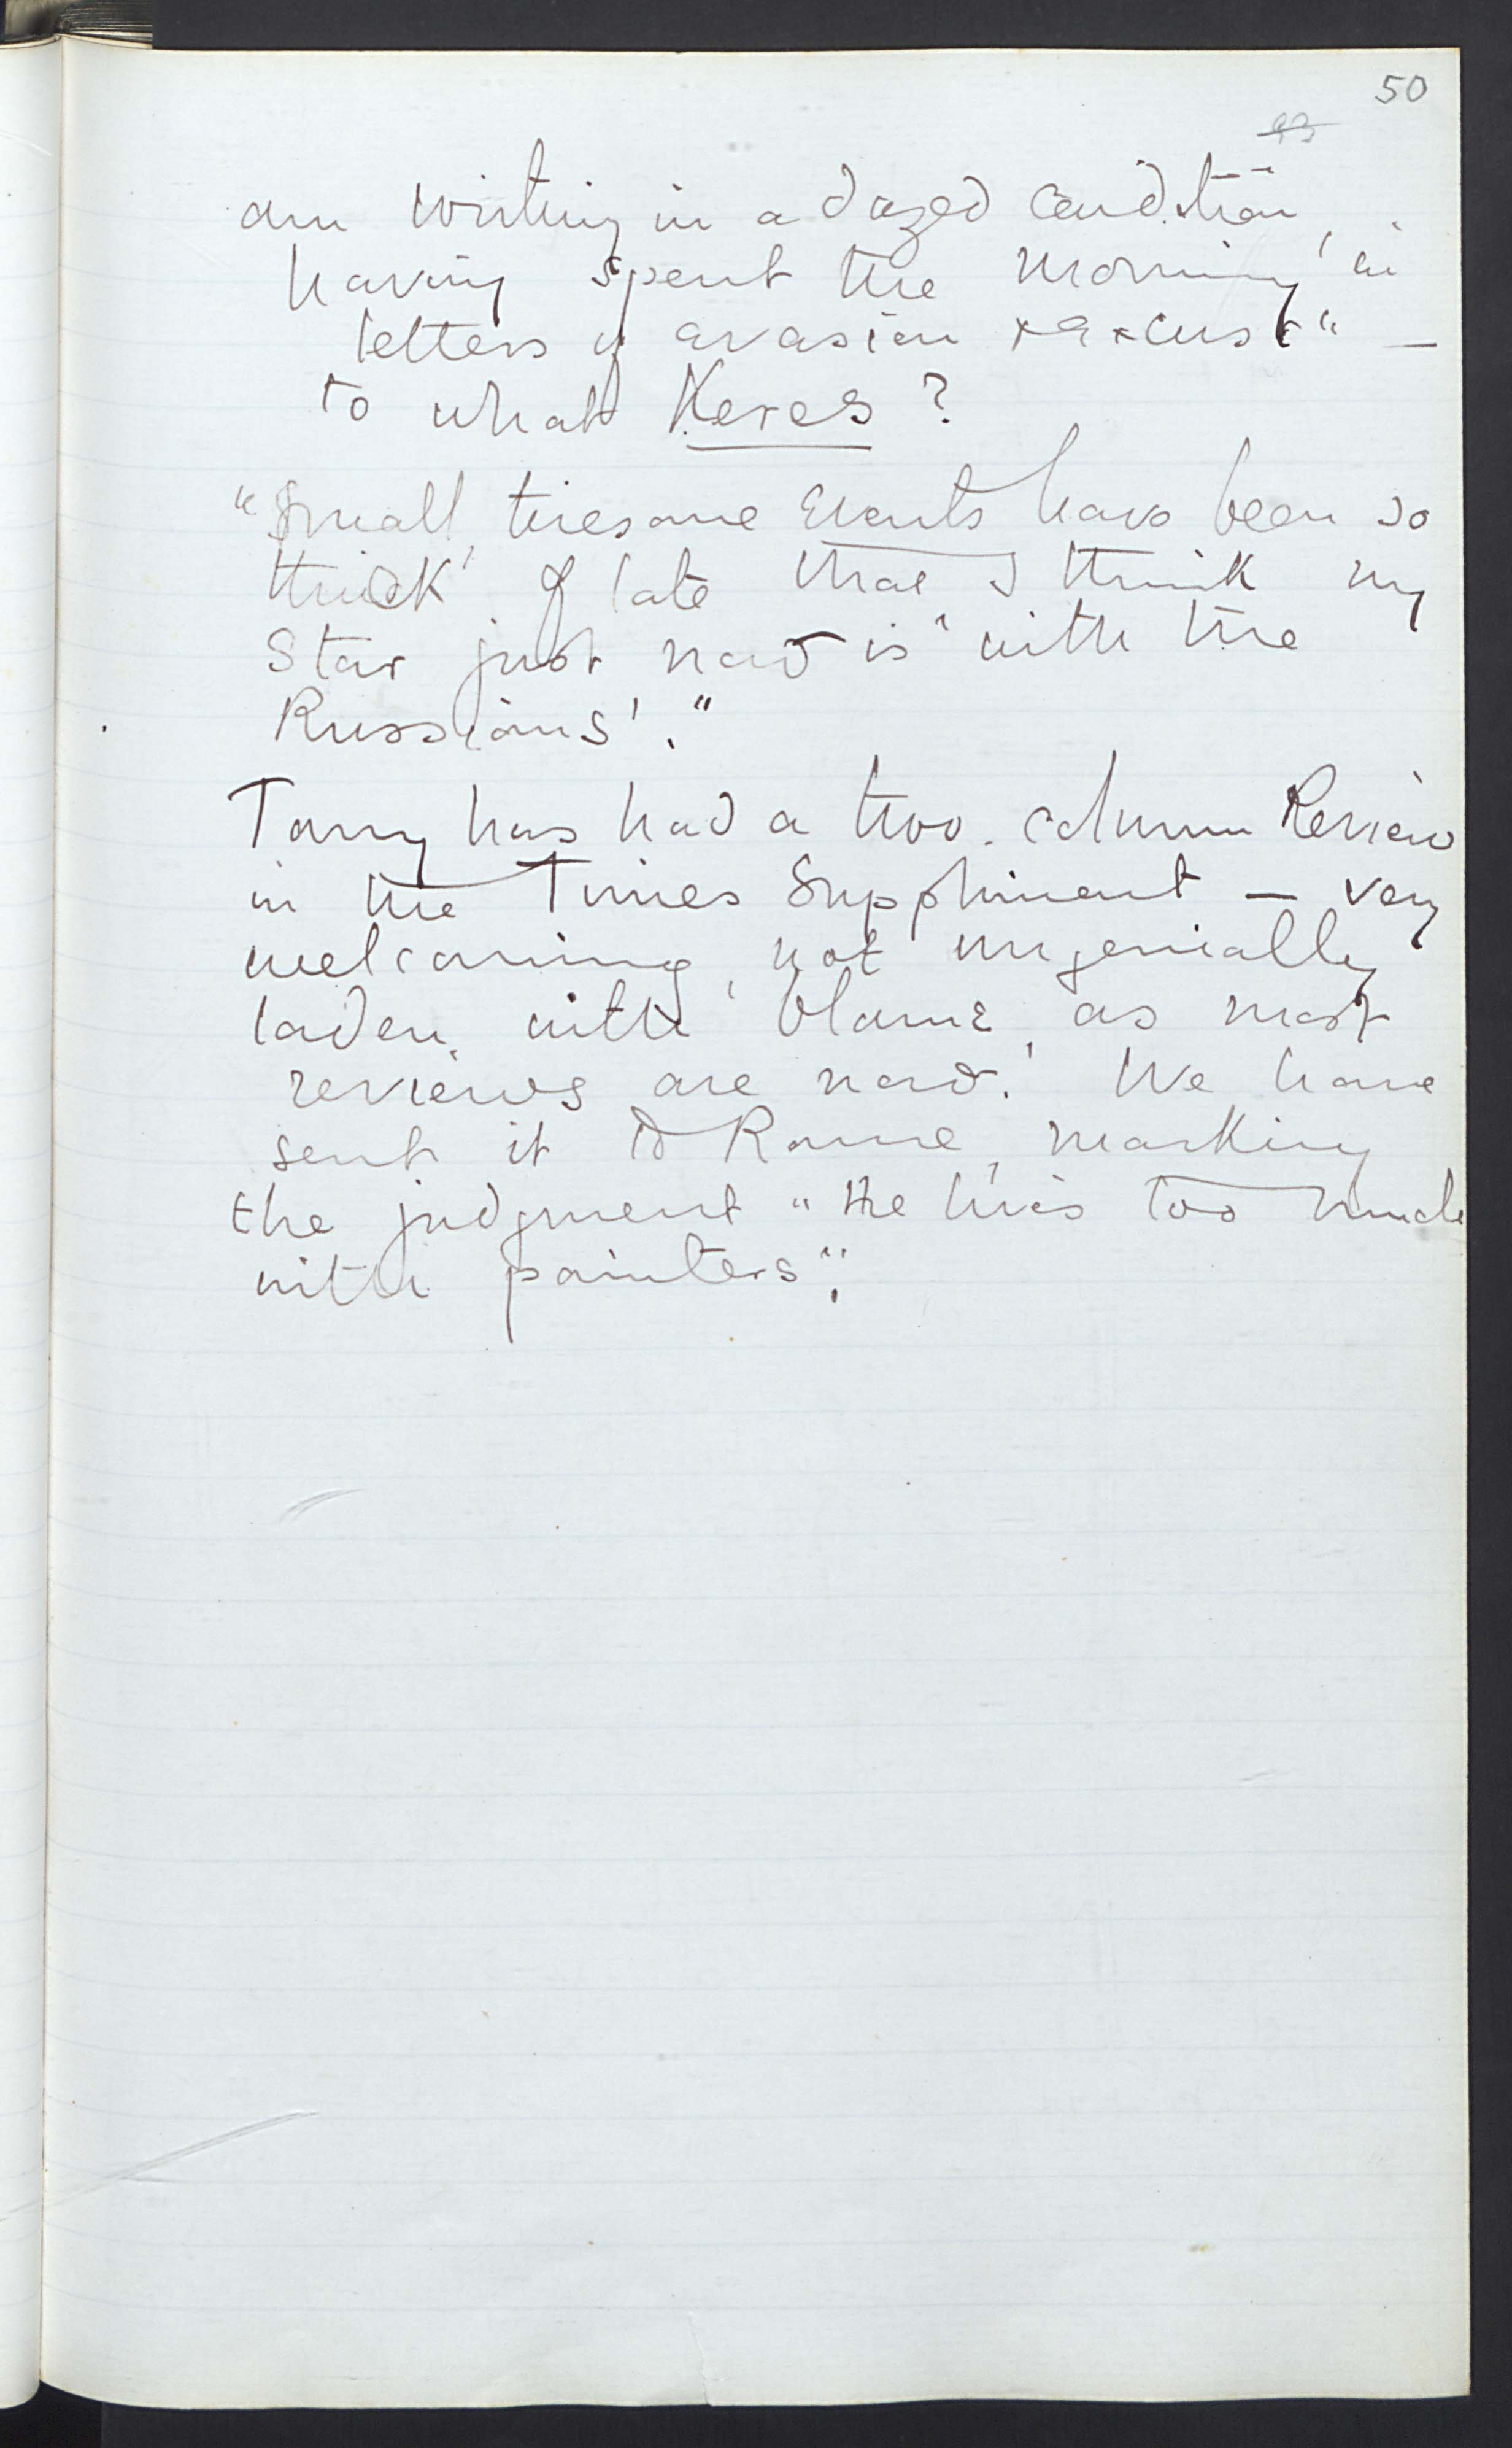 50
93
am writing in a dazed condition,
having spent the morning in
letters of evasion & excuse" —
to what Xeres?
"Small, tiresome events have been so
thick of late that I think my
Star just now is 'with the
Russians'."
Tommy has had a two. column Review
in the Times Suppliment — very
welcoming, not ungenially
laden with blame, as most
reviews are now. We have
sent it to Rome, marking
the judgment "He lives too much
with painters".